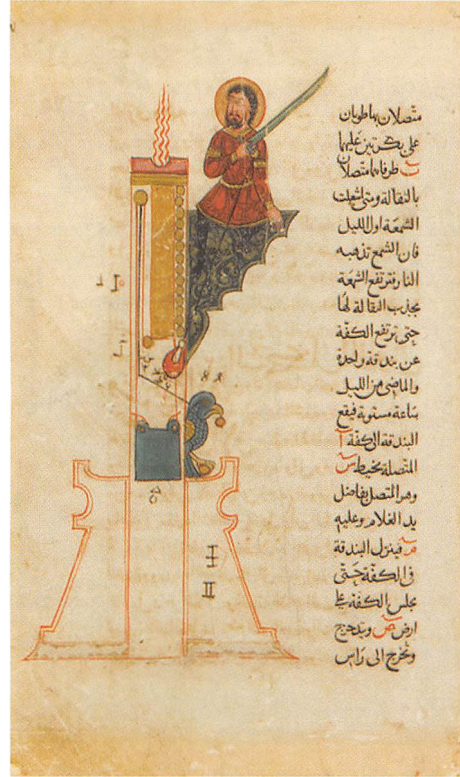 متصلان بهاطويان
على بكرتين عليها
ب طرفاهما متصلان
بالنقالة ومتى اشعلت
الشمعة اول الليل
فان الشمع تذهبه
النار فترتفع الشمعة
بجذب النقالة لها
حتى ترتفع الكفة
عن بندقة واحدة
والماضى من الليل
ساعة مستوية فيقع
البندقة الى كفة آ
المتصلة بخيط س
وهو المتصل بفاضل
يد الغلام وعليه
فينزل البندقة
فى الكفة حتى
مجلس الكفة على
ارض ص ويتدحرج
وتخرج الى راس